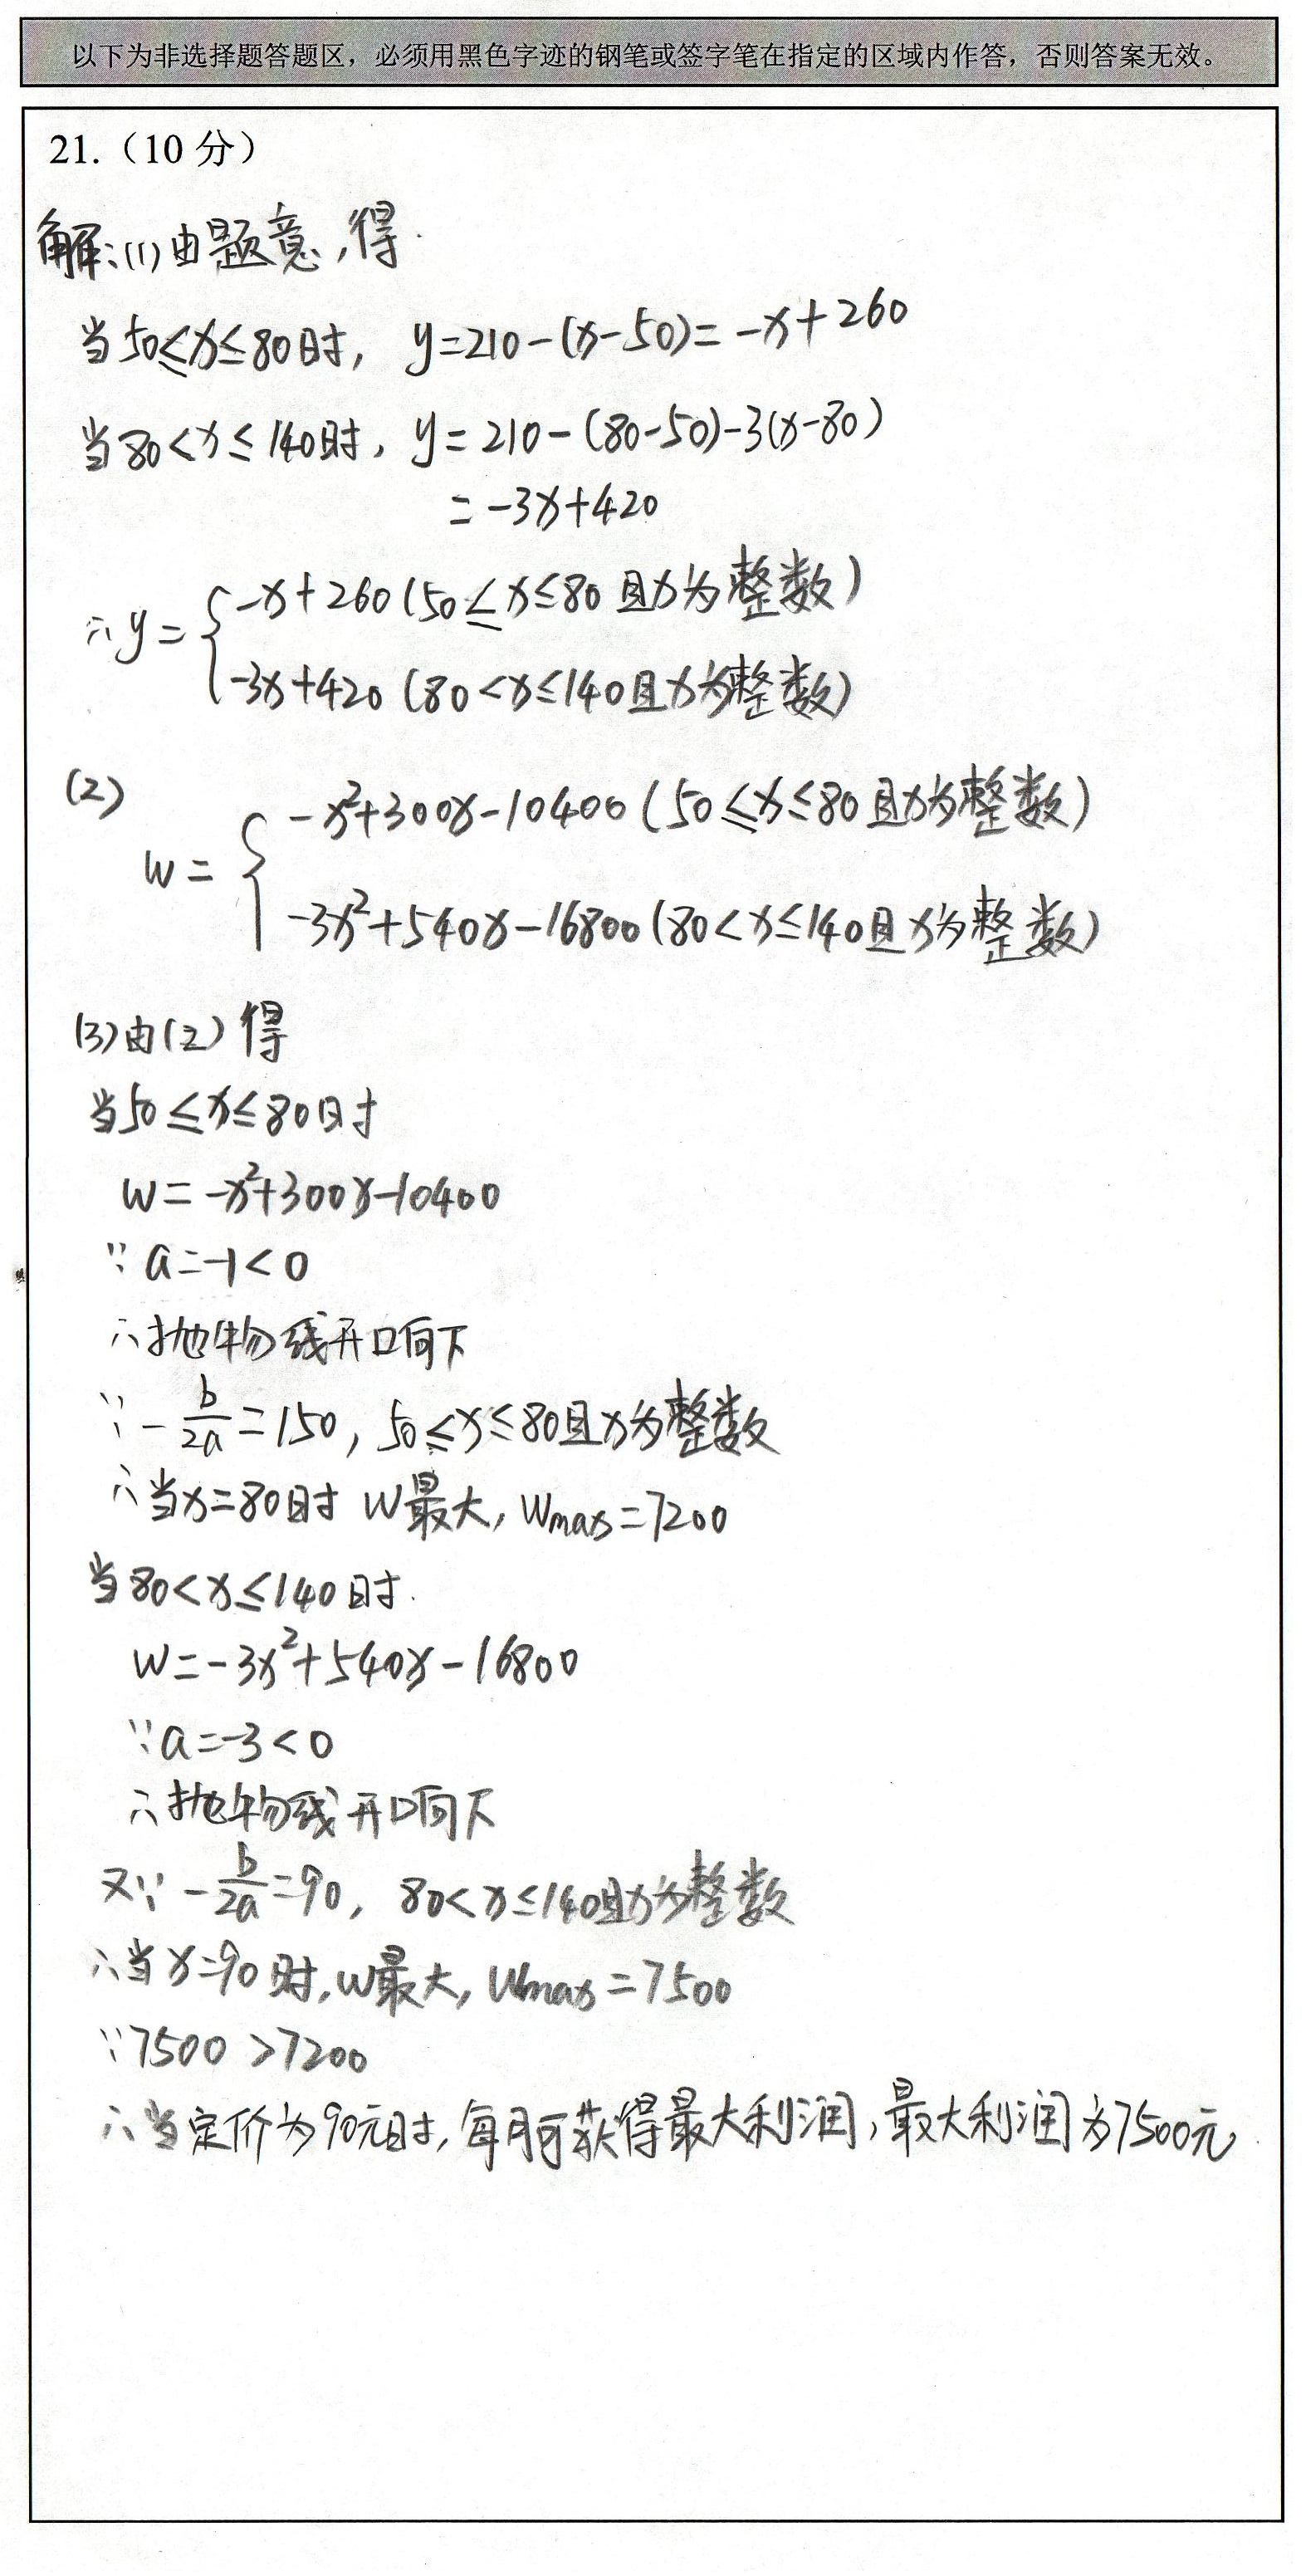 以下为非选择题答题区，必须用黑色字迹的钢笔或签字笔在指定的区域内作答，否则答案无效。
21.（10 分）
解:(1)由题意,得.
当50≤x≤80时, y=210-(x-50)=-x+260
当80<x≤140时, y=210-(80-50)-3(x-80)
=-3x+420
∴y={-x+260(50≤x≤80且x为整数)
-3x+420(80<x≤140且x为整数)
(2)
w={-x²+300x-10400(50≤x≤80且x为整数)
-3x²+540x-16800(80<x≤140且x为整数)
(3)由(2)得
当50≤x≤80时
w=-x²+300x-10400
∵a=-1<0
∴抛物线开口向下
∵-b/2a=150, 50≤x≤80且x为整数
∴当x=80时 w最大, wmax=7200
当80<x≤140时.
w=-3x²+540x-16800
∵a=-3<0
∴抛物线开口向下
又∵-b/2a=90, 80<x≤140且x为整数
∴当x=90时,w最大, wmax=7500
∵7500>7200
∴当定价为90元时,每月可获得最大利润,最大利润为7500元.